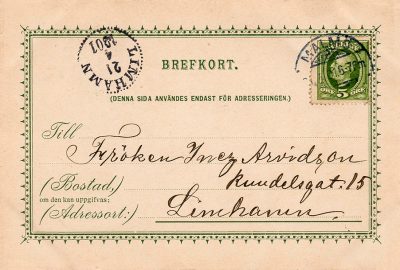 LIMHAMN
21
4
1901
BREFKORT.
MALMÖ
5 ÖRE
(DENNA SIDA ANVÄNDES ENDAST FÖR ADRESSERINGEN.)
Till
Fröken Inez Arvidzon
(Bostad,)
Kundelsgat. 15
om den kan uppgifvas;
(Adressort:)
Limhamn.